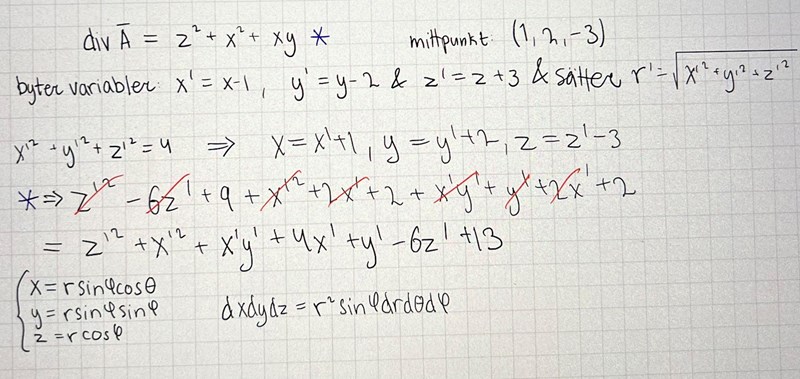 div Ā = z² + x² + xy * mittpunkt: (1, 2, -3)
byter variabler: x' = x-1, y' = y-2 & z' = z+3 & sätter r' = √(x'² + y'² + z'²)
x'² + y'² + z'² = 4 ⇒ x = x'+1, y = y'+2, z = z'-3
* ⇒ z'² - 6z' + 9 + x'² + 2x' + 2 + x'y' + y' + 2x' + 2
= z'² + x'² + x'y' + 4x' + y' - 6z' + 13
{ x = r sinφ cosθ
y = r sinφ sinφ dxdydz = r² sinφ dr dθ dφ
z = r cosφ